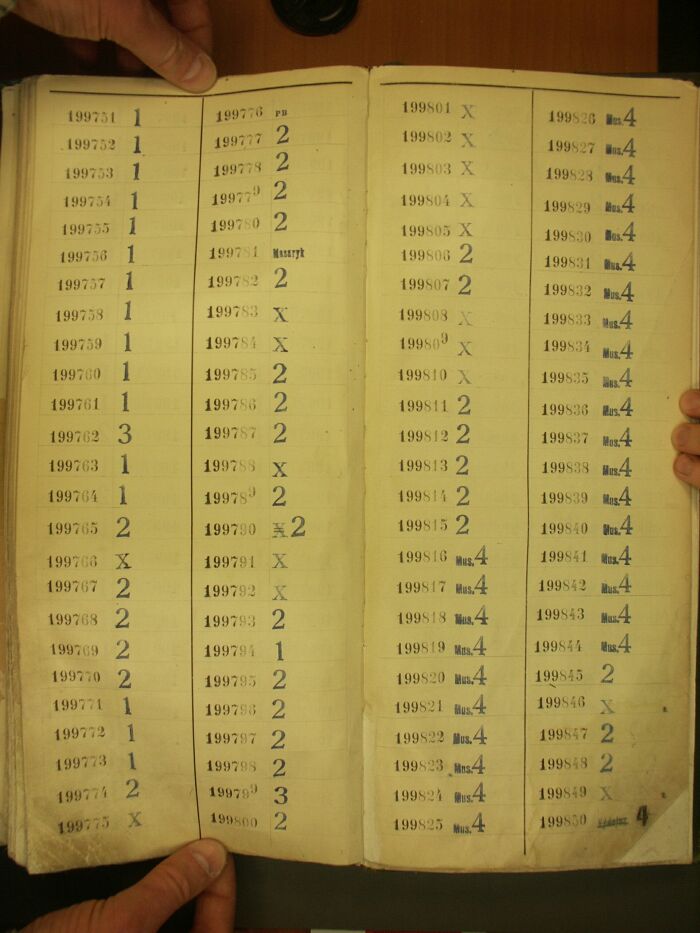 199751 1
199752 1
199753 1
199754 1
199755 1
199756 1
199757 1
199758 1
199759 1
199760 1
199761 1
199762 3
199763 1
199764 1
199765 2
199766 X
199767 2
199768 2
199769 2
199770 2
199771 1
199772 1
199773 1
199774 2
199775 X
199776 PB
199777 2
199778 2
199779 2
199780 2
199781 Masaryk
199782 2
199783 X
199784 X
199785 2
199786 2
199787 2
199788 X
199789 2
199790 X 2
199791 X
199792 X
199793 2
199794 1
199795 2
199796 2
199797 2
199798 2
199799 3
199800 2
199801 X
199802 X
199803 X
199804 X
199805 X
199806 2
199807 2
199808 X
199809 X
199810 X
199811 2
199812 2
199813 2
199814 2
199815 2
199816 Mus.4
199817 Mus.4
199818 Mus.4
199819 Mus.4
199820 Mus.4
199821 Mus.4
199822 Mus.4
199823 Mus.4
199824 Mus.4
199825 Mus.4
199826 Mus.4
199827 Mus.4
199828 Mus.4
199829 Mus.4
199830 Mus.4
199831 Mus.4
199832 Mus.4
199833 Mus.4
199834 Mus.4
199835 Mus.4
199836 Mus.4
199837 Mus.4
199838 Mus.4
199839 Mus.4
199840 Mus.4
199841 Mus.4
199842 Mus.4
199843 Mus.4
199844 Mus.4
199845 2
199846 X
199847 2
199848 2
199849 X
199850 4